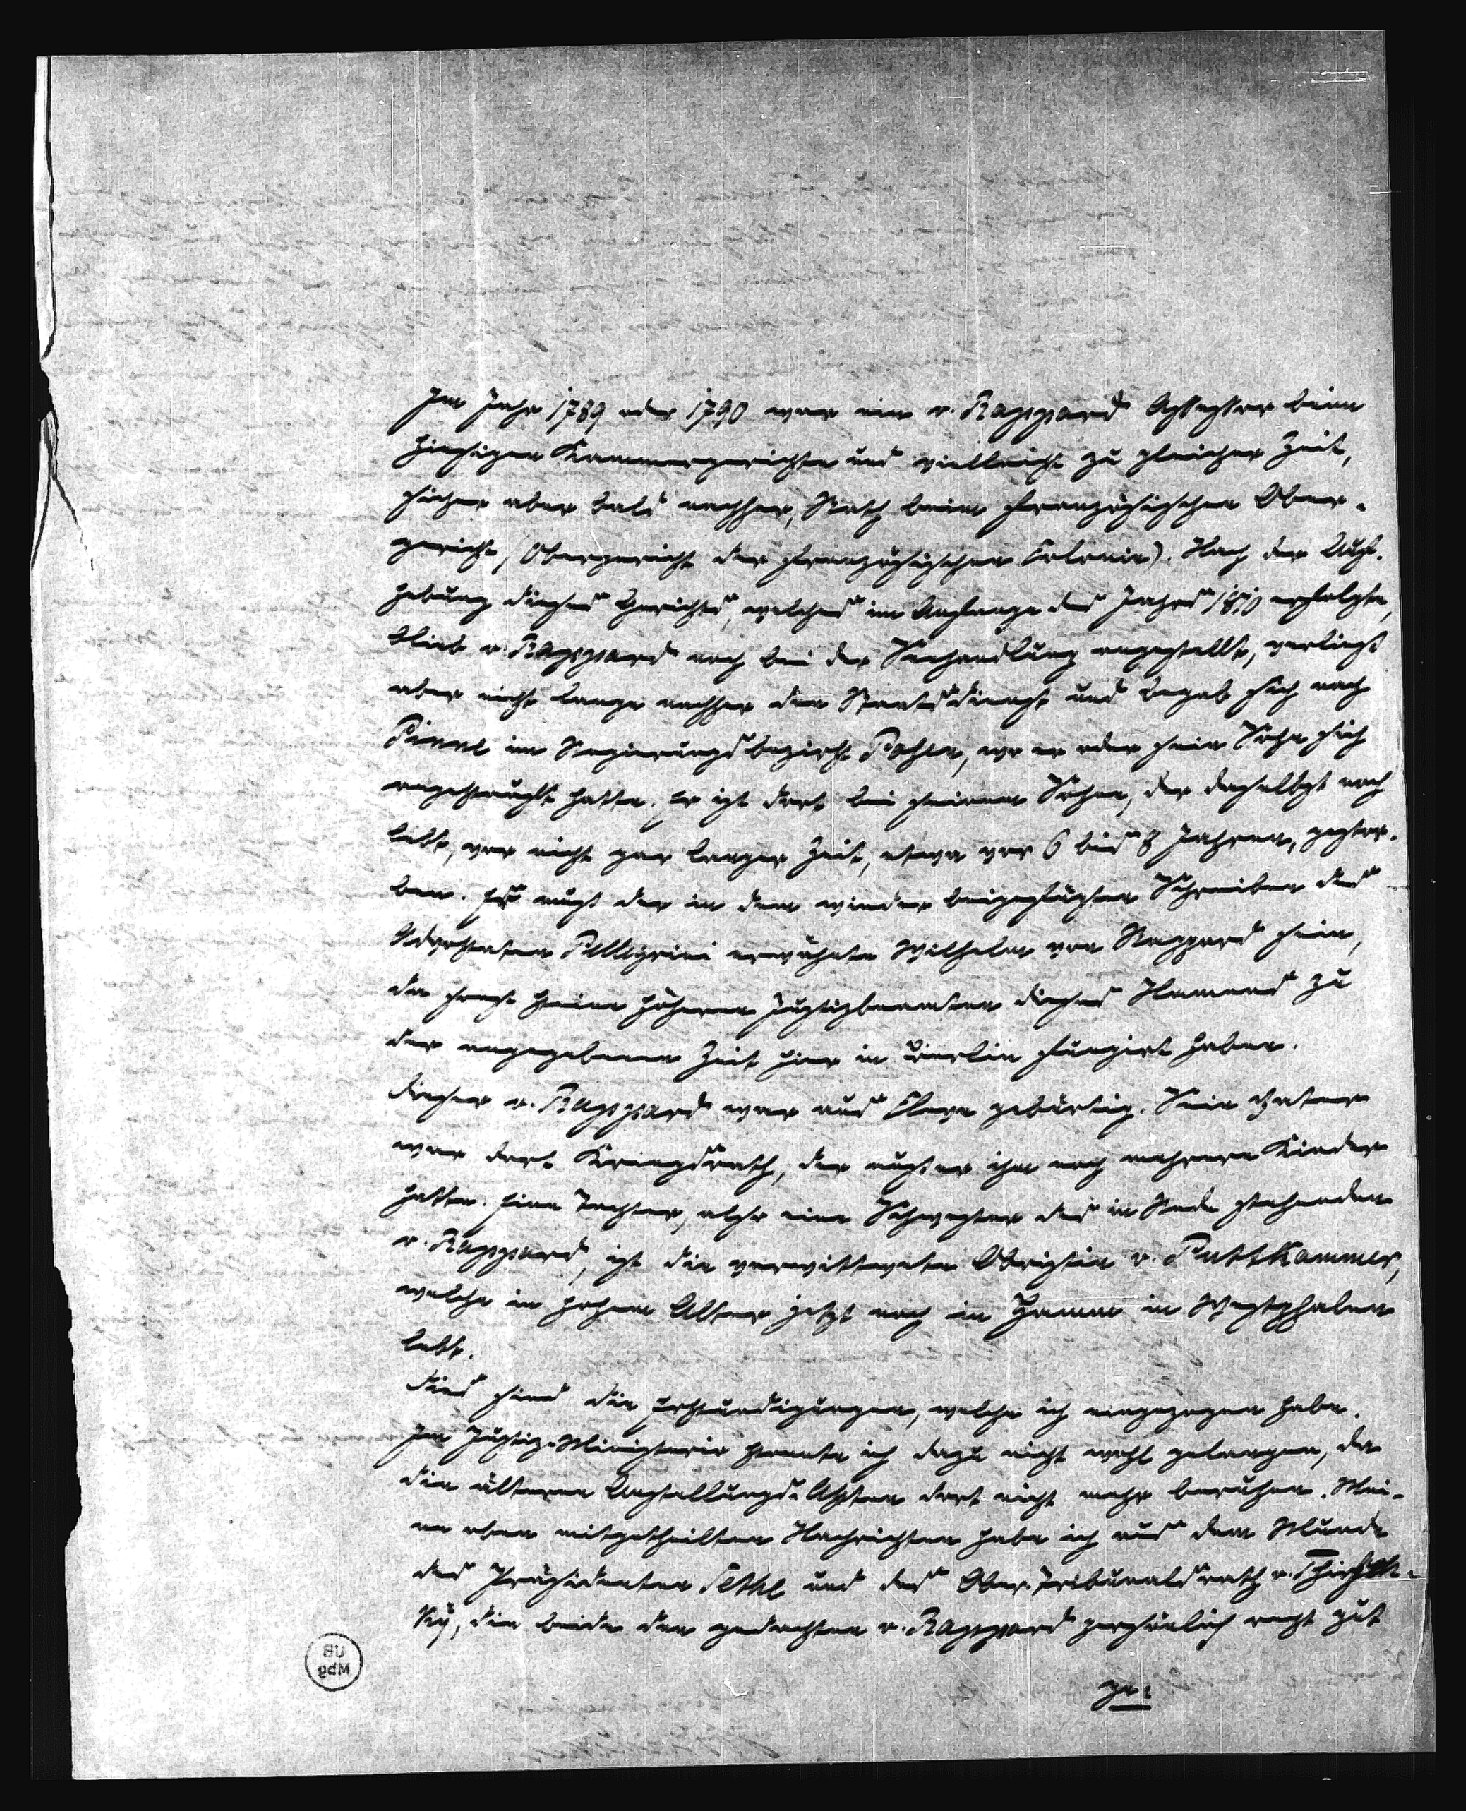 Im Jahr 1789 oder 1790 war ein v. Rappard Assessor beim
hiesigen Kammergerichte und vielleicht zu gleicher Zeit,
sicher aber bald nachher, Rath beim französischen Ober-
gericht, (Obergericht der französischen Colonie). Nach der Auf-
hebung dieses Gerichts, welches im Anfange des Jahres 1810 erfolgte,
blieb v. Rappard noch bei der Seehandlung angestellt, verließ
aber nicht lange nachher den Staatsdienst und begab sich nach
Pinne im Regierungsbezirk Posen, wo er oder sein Sohn sich
angekauft hatte. Er ist dort bei seinem Sohne, der daselbst noch
lebt, vor nicht gar langer Zeit, etwa vor 6 bis 8 Jahren, gestor-
ben. Es muß der in dem wieder beigefügten Schreiben des
Advokaten Pellegrini erwähnte Wilhelm von Rappard sein,
da sonst keine höheren Justizbeamten dieses Namens zu
der angegebenen Zeit hier in Berlin fungirt haben.
Dieser v. Rappard war aus Cleve gebürtig. Sein Vater
war dort Kriegsrath, der außer ihm noch mehrere Kinder
hatte. Eine Tochter, also eine Schwester des in Rede stehenden
v. Rappard, ist die verwittwete Obristin v. Puttkammer,
welche in hohem Alter jetzt noch in Hamm in Westphalen
lebt.
Dies sind die Erkundigungen, welche ich eingezogen habe.
Im Justiz-Ministerio konnte ich dazu nicht wohl gelangen, da
die älteren Anstellungs-Akten dort nicht mehr beruhen. Mei-
ne oben mitgetheilten Nachrichten habe ich aus dem Munde
des Präsidenten Sethe und des Ober-Tribunalsrath v.
ky, die beide den gedachten v. Rappard persönlich recht gut
ge-
UB
Mbg